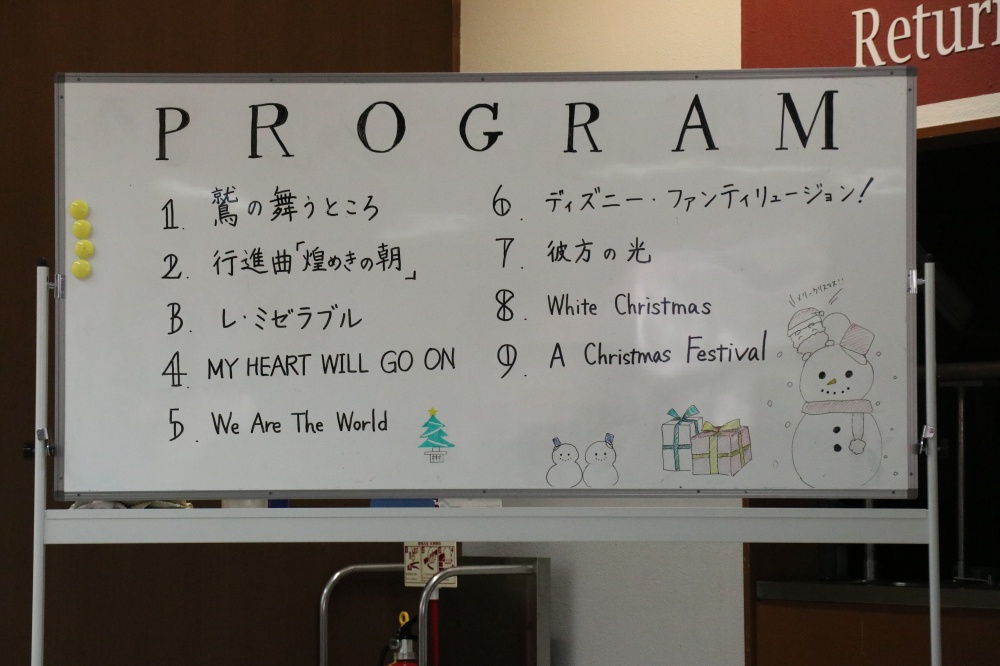 Return
PROGRAM
1. 鷲の舞うところ
2. 行進曲「煌めきの朝」
3. レ・ミゼラブル
4. MY HEART WILL GO ON
5. We Are The World
6. ディズニー・ファンティリュージョン!
7. 彼方の光
8. White Christmas
9. A Christmas Festival
メリークリスマス!!